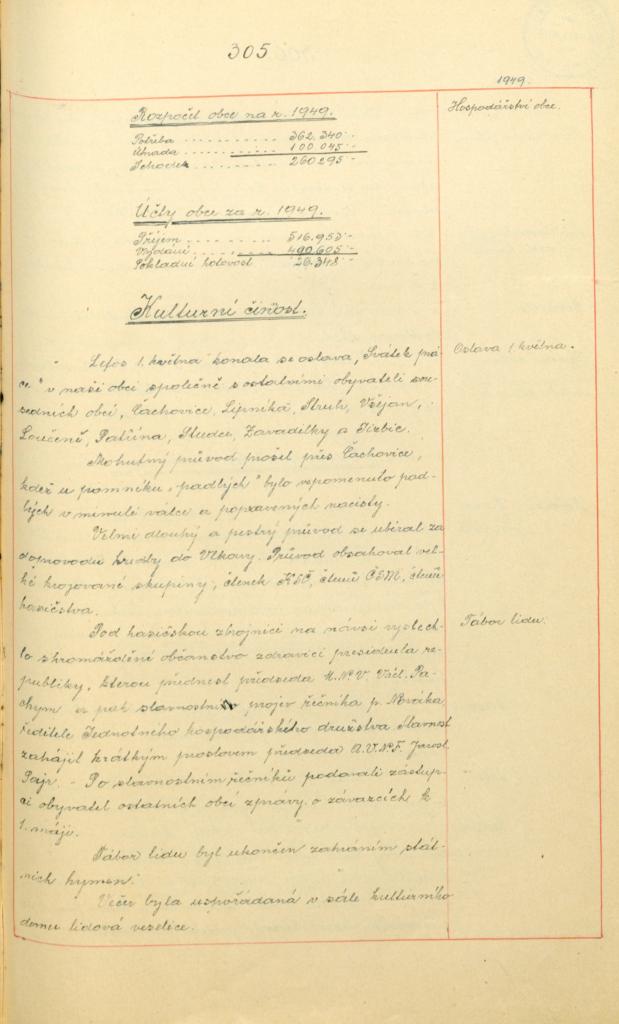 305
1949.
Rozpočet obce na r. 1949.
Hospodářství obce.
Potřeba . . . . . . . . . . . 362.340·-
Úhrada . . . . . . . . . . . 100.045·-
Schodek . . . . . . . . . . 260295·-
Účty obce za r. 1949.
Příjem . . . . . . . . . . 516.953·-
Vydání . . . . . . . . . . 490.605·-
Pokladní hotovost 26.348·-
Kulturní činost.
Letos 1. května konala se oslava „Svátek prá-
Oslava 1. května.
ce" v naší obci společně s ostatními obyvateli sou-
sedních obcí, Čachovice, Lipníka, Struh, Všejan,
Loučeně, Patřína, Studce, Zavadilky a Jizbic.
Mohutný průvod prošel přes Čachovice,
kdež u pomníku „padlých" bylo vzpomenuto pad-
lých v minulé válce a popravených nacisty.
Velmi dlouhý a pestrý průvod se ubíral za
doprovodu hudby do Vlkavy. Průvod obsahoval vel-
ké krojované skupiny, členek KSČ, členů ČSM, členů
hasičstva.
Pod hasičskou zbrojnicí na návsi vyslech-
Tábor lidu.
lo shromážděné občanstvo zdravici presidenta re-
publiky, kterou přednesl předseda M.N.V. Václ. Pa-
chym a pak slavnostní projev řečníka p. Nováka,
ředitele Jednotného hospodářského družstva. Slavnost
zahájil krátkým proslovem předseda A.V.N.F. Jarosl.
Pajr. - Po slavnostním řečníků podávali zástup-
ci obyvatel ostatních obcí zprávy o závazcích k
1. máji.
Tábor lidu byl ukončen zahráním stát-
ních hymen.
Večer byla uspořádaná v sále kulturního
domu lidová veselice.